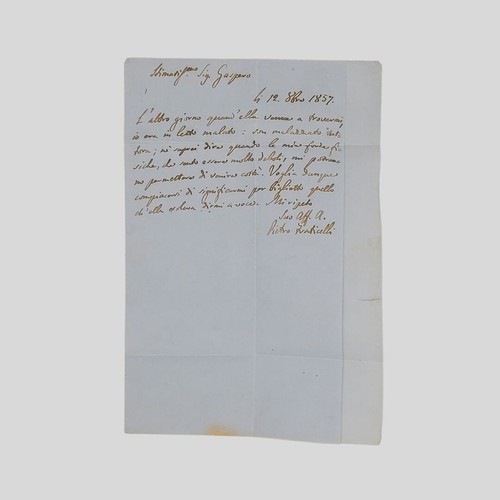 Stimatis.mo Sig. Gaspero
li 12. 8bre 1857.
L'altro giorno quand'ella venne a trovarmi,
io era in letto malato: son malazzato tut-
tora; nè saprei dire quando le mie forze fi-
siche, che sento essere molto deboli, mi potran-
no permettere di venire costì. Voglia dunque
compiacersi di significarmi per biglietto quello
ch'ella voleva dirmi a voce. Mi ripeto
Suo Aff. A.
Pietro Fraticelli